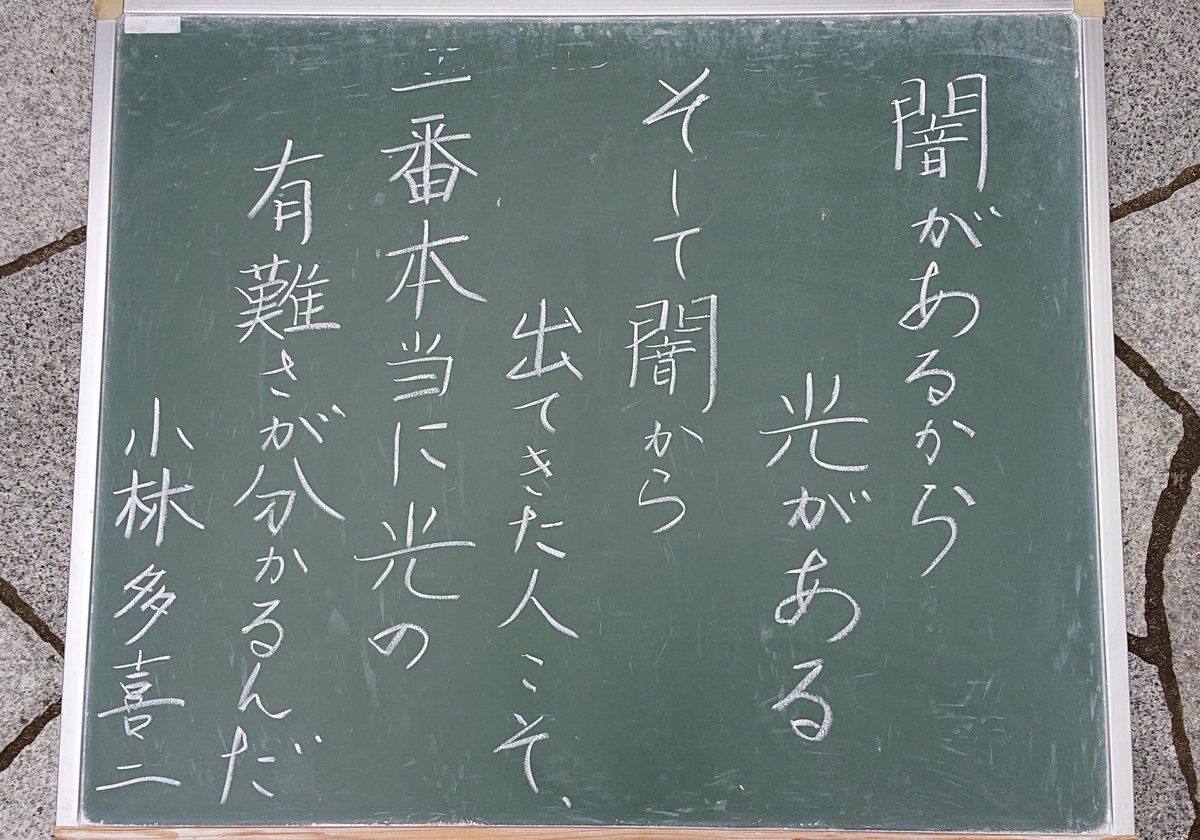 闇があるから
光がある
そして闇から
出てきた人こそ、
一番本当に光の
有難さが分かるんだ
小林多喜二